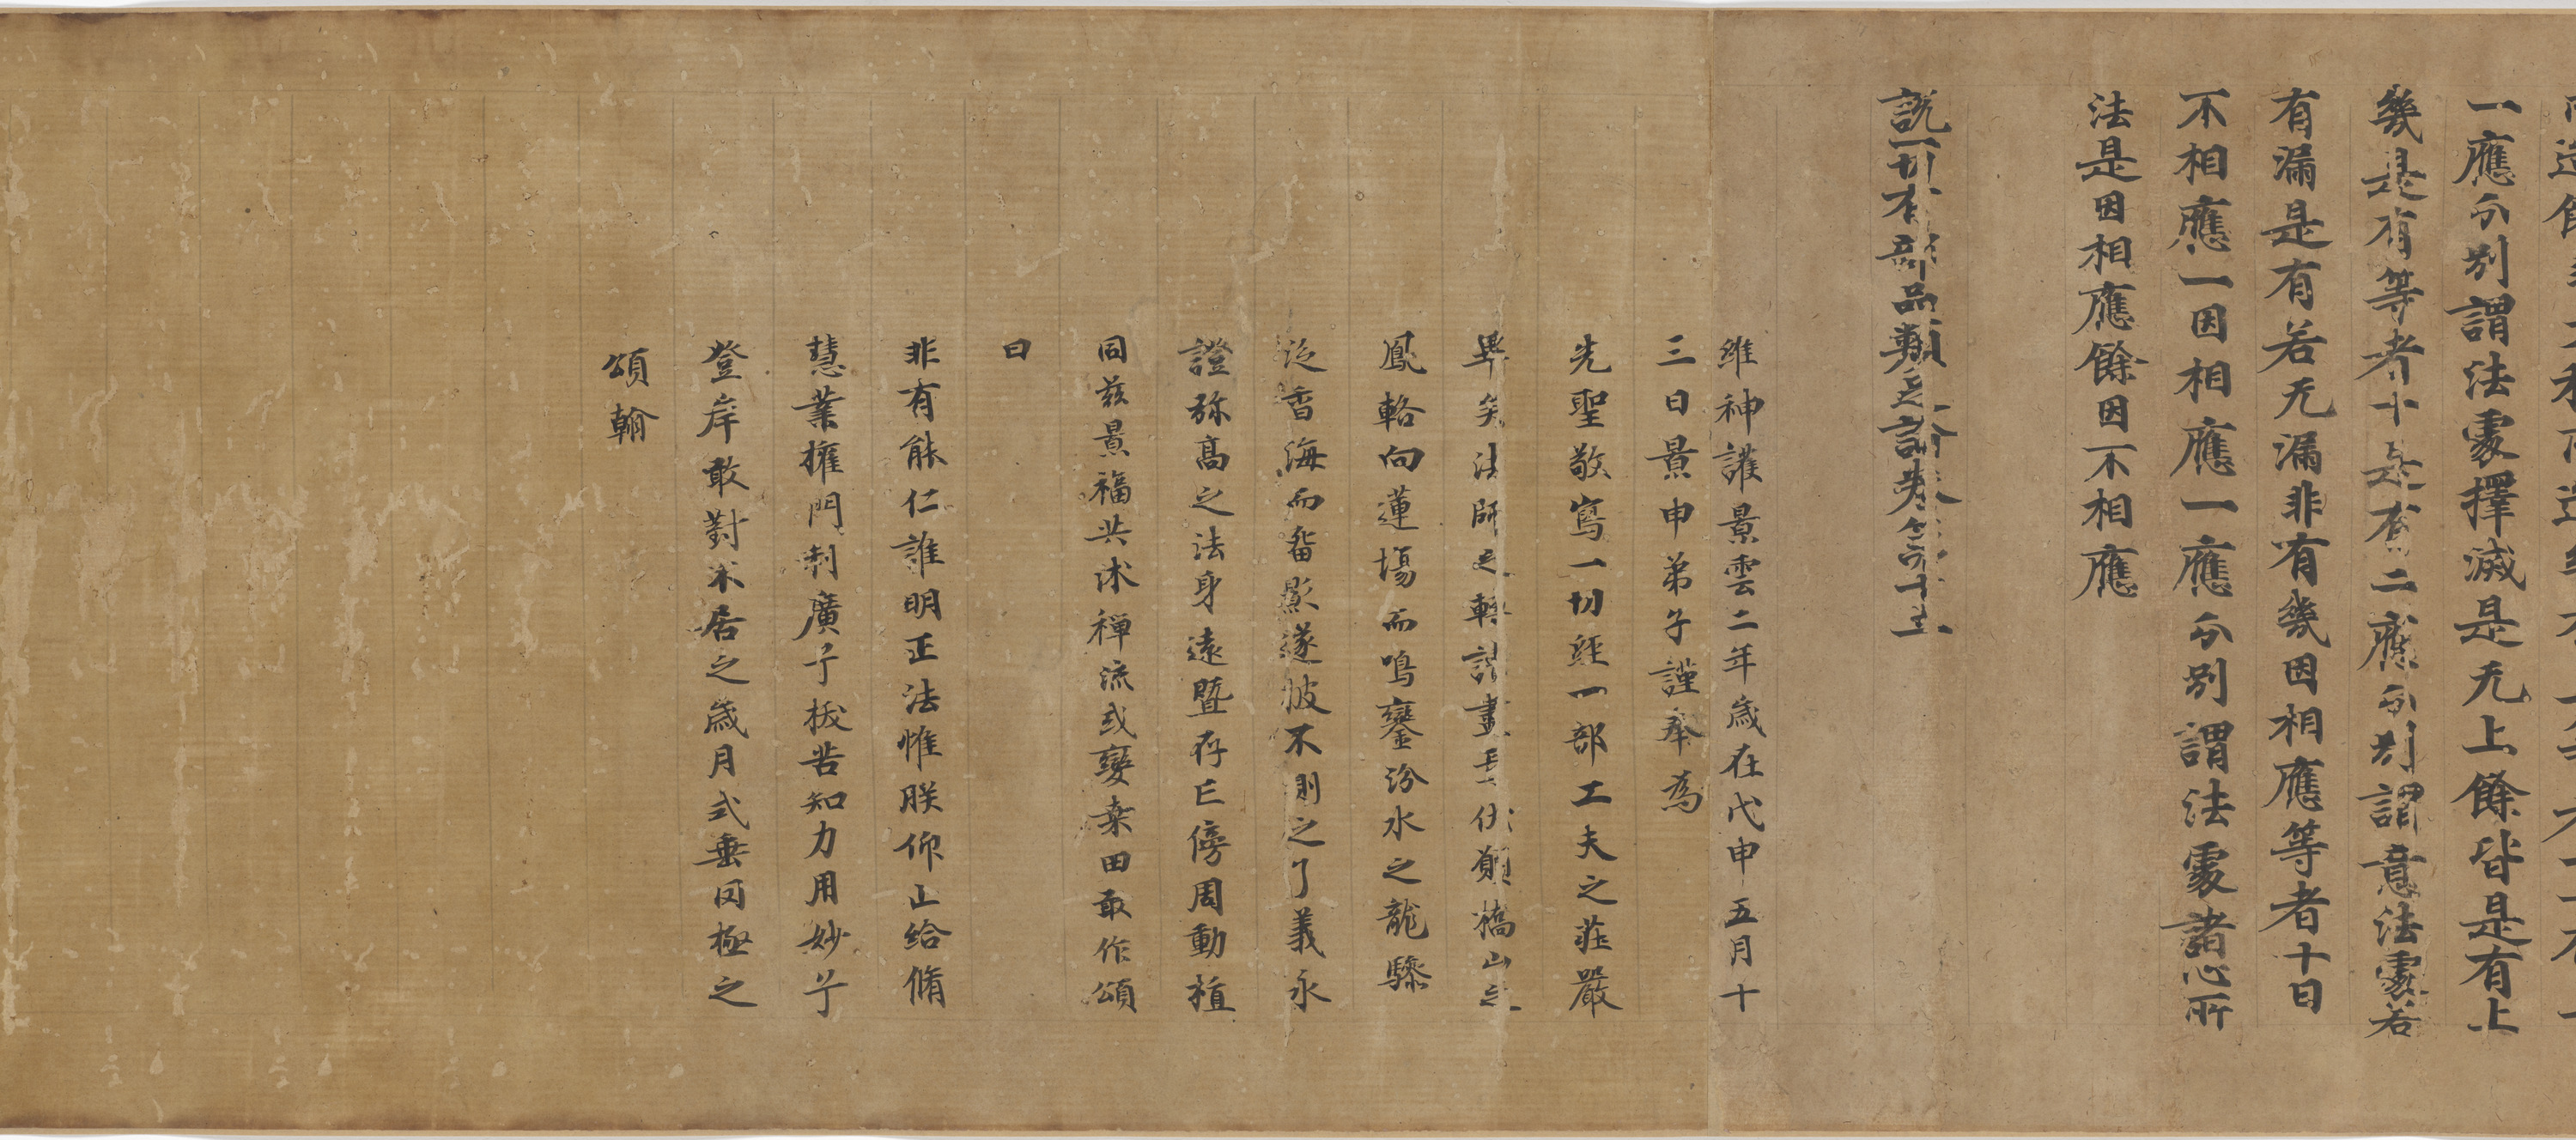 一應分別謂法處擇滅是无上餘皆是有上
幾是有等者十是有二應分別謂意法處若
有漏是有若无漏非有幾因相應等者十曰
不相應一因相應一應分別謂法處諸心所
法是因相應餘因不相應
說一切有部品類足論卷第十五
維神護景雲二年歲在戊申五月十
三日景申弟子謹奉為
先聖敬寫一切經一部工夫之莊嚴
畢矣法師之轉讀盡焉伏願橋山之
鳳輅向蓮場而鳴鑾汾水之龍驂
泛香海而留影遂披不測之了義永
證弥高之法身遠暨存亡傍周動植
同茲景福共沐禪流或變桒田敢作頌
曰
非有能仁誰明正法惟朕仰止給脩
慧業權門利廣兮拔苦知力用妙兮
登岸敢對不居之歲月式垂罔極之
頌翰